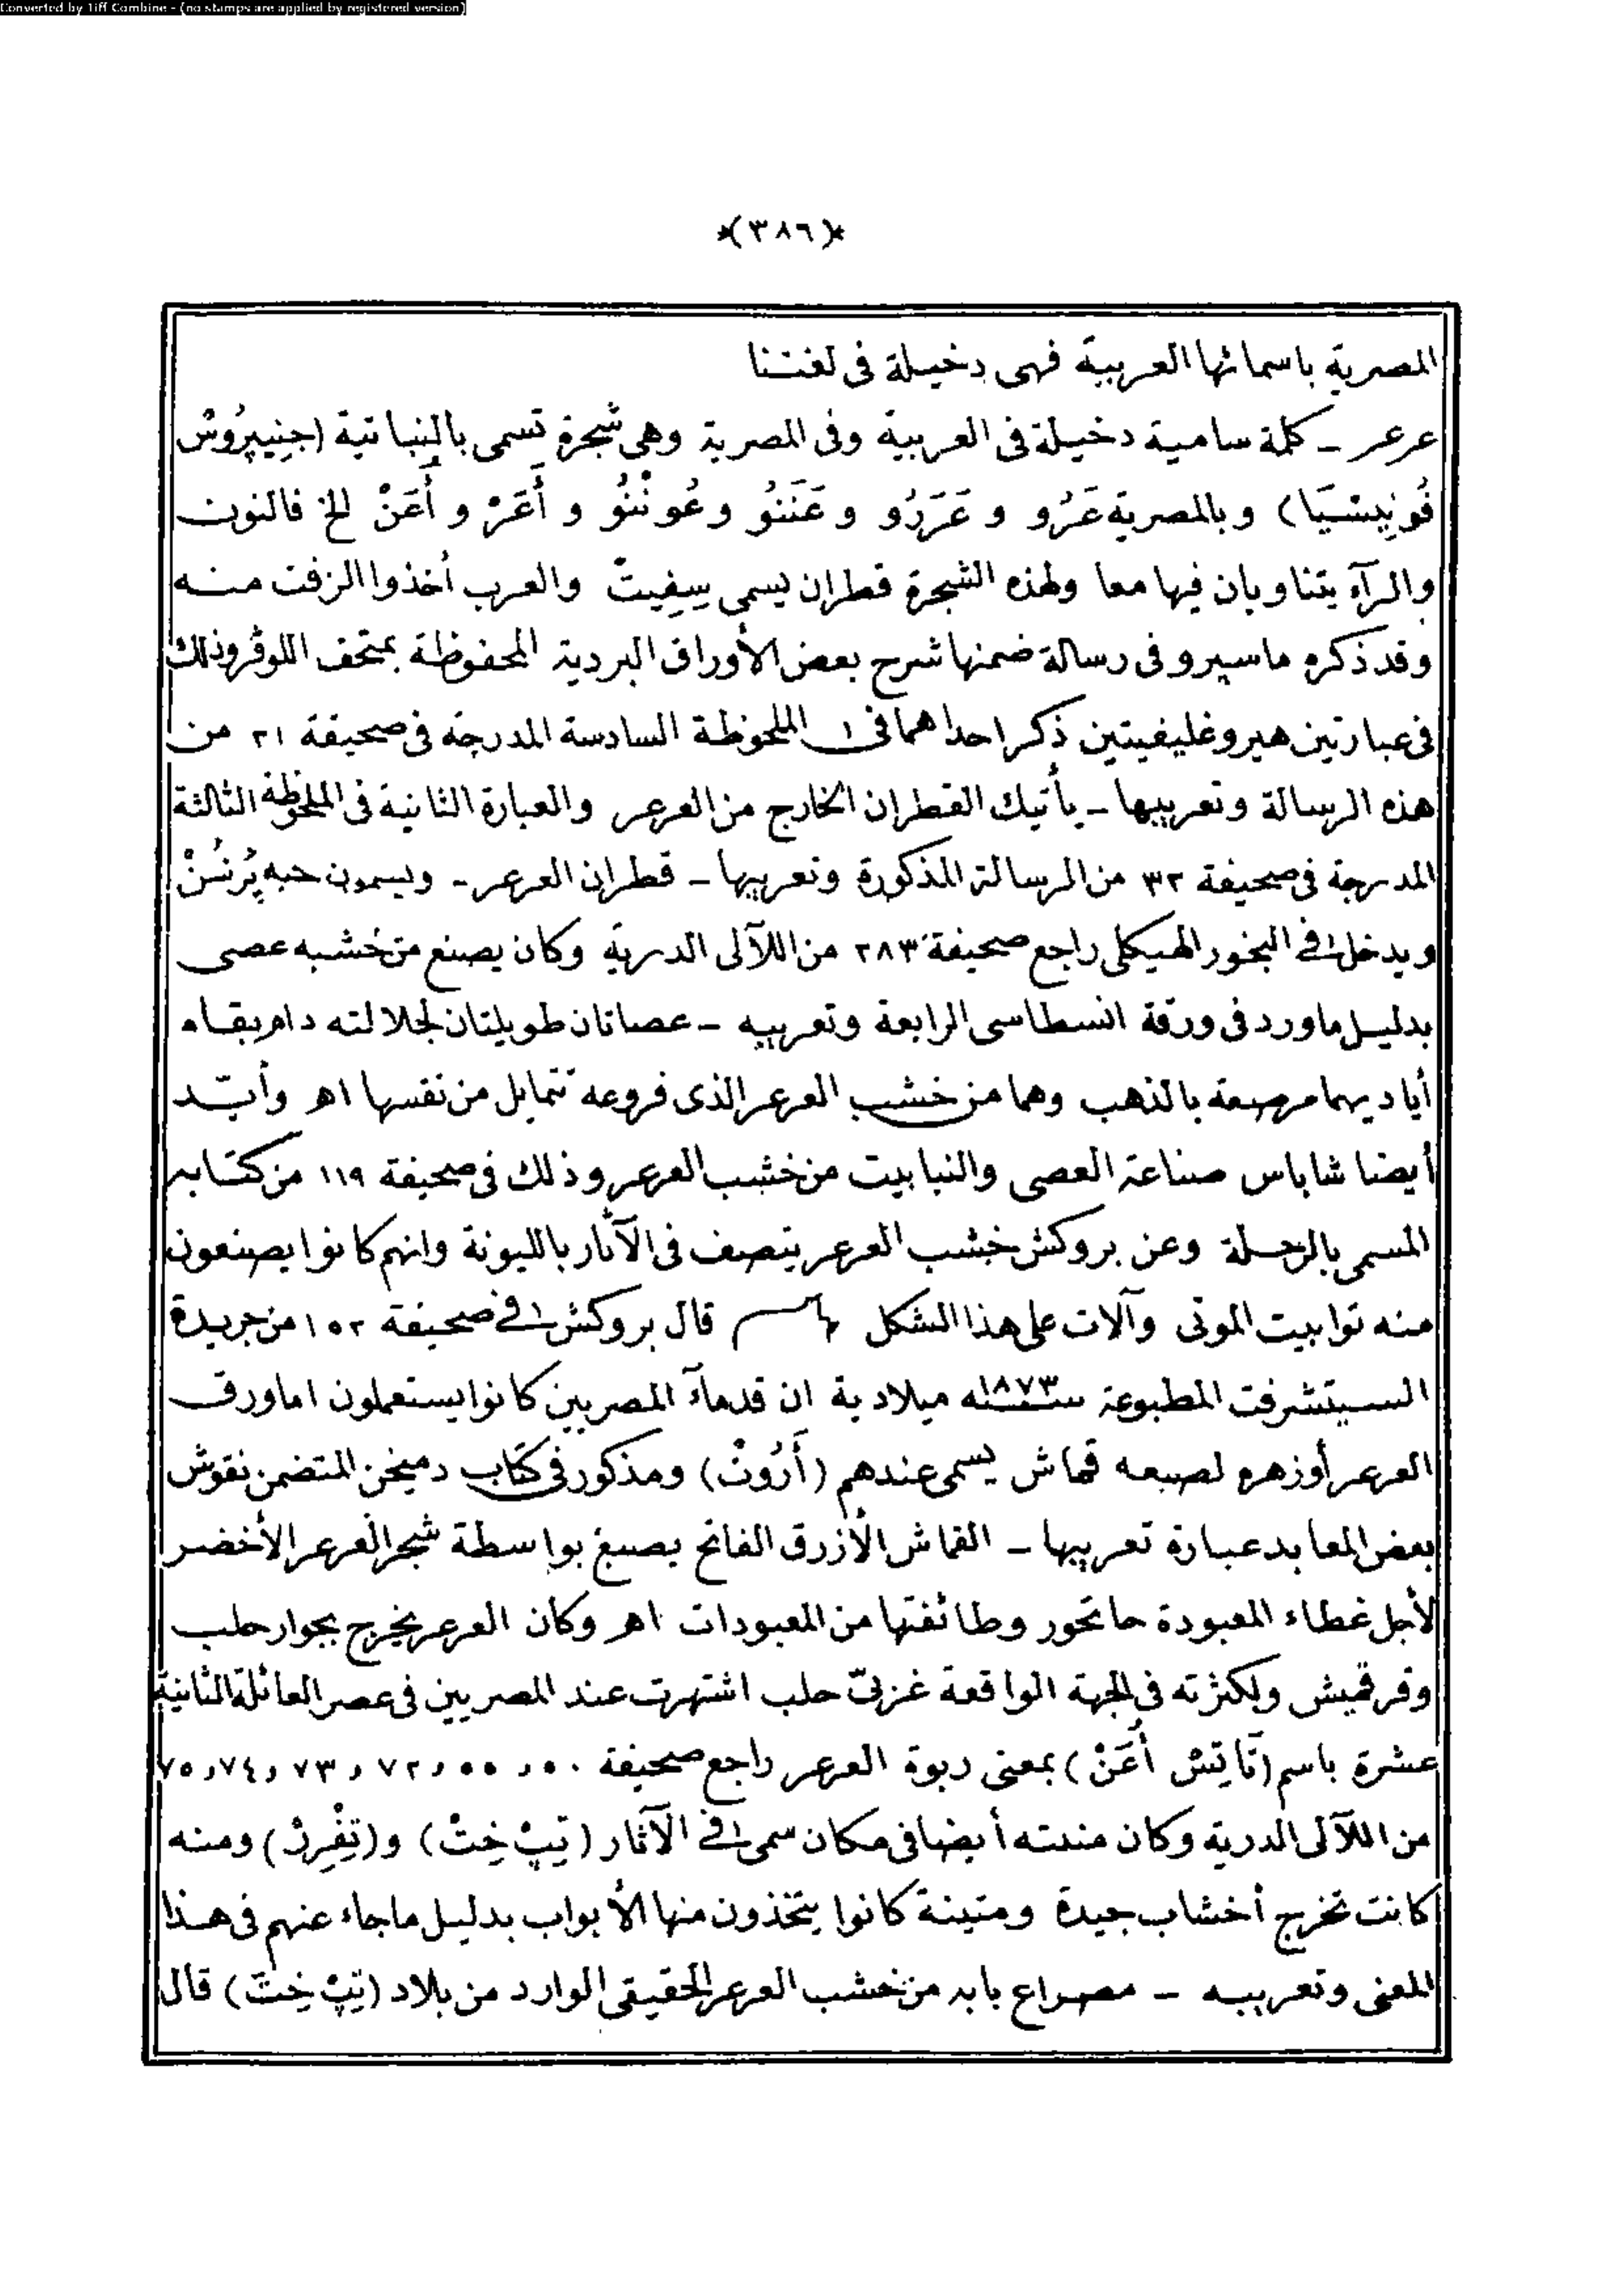 Converted by Tiff Combine - (no stamps are applied by registered version)
*(٣٨٦)*
المصرية باسمائها العربية فهى دخيلة فى لغتنا
عرعر ـ كلمة سامية دخيلة فى العربية وفى المصرية وهى شجرة تسمى بالنباتية (جِنِيپرُوسْ
فُونِيسْيَا) وبالمصرية عَرُو و عَرَرُو و عَنَنُو و عُونْنُو و أَعَرْ و أَعَنْ الخ فالنون
والرآء يتناوبان فيها معا ولهذه الشجرة قطران يسمى سِفِيتْ والعرب أخذوا الزفت منه
وقد ذكره ماسيرو فى رسالة ضمنها شرح بعض الأوراق البردية المحفوظة بمتحف اللوڤر وذلك
فى عبارتين هيروغليفيتين ذكر احداهما فى الملحوظة السادسة المدرجة فى صحيفة ٢١ من
هذه الرسالة وتعريبها ـ يأتيك القطران الخارج من العرعر والعبارة الثانية فى الملحوظة الثالثة
المدرجة فى صحيفة ٣٢ من الرسالة المذكورة وتعريبها ـ قطران العرعر ـ ويسمون حبه پُرشُنْ
ويدخل فى البخور الهيكلى راجع صحيفة ٢٨٣ من اللآلى الدرية وكان يصنع من خشبه عصى
بدليل ماورد فى ورقة انسطاسى الرابعة وتعريبه ـ عصاتان طويلتان لجلالته دام بقاه
أياديهما مرصعة بالذهب وهما من خشب العرعر الذى فروعه تتمايل من نفسها اهـ وأيّد
أيضا شاباس صناعة العصى والنبابيت من خشب العرعر وذلك فى صحيفة ١١٩ من كتابه
المسمى بالرحلة وعن بروكش خشب العرعر يتصف فى الآثار بالليونة وانهم كانوا يصنعون
منه توابيت الموتى وآلات على هذا الشكل قال بروكش فى صحيفة ١٥٢ من جريدة
السيتشرفت المطبوعة سنة ١٨٧٣ ميلادية ان قدماء المصريين كانوا يستعملون اما ورق
العرعر أو زهره لصبغه قماش يسمى عندهم (أَرُوتْ) ومذكور فى كتاب دميخن المتضمن نقوش
بعض المعابد عبارة تعريبها ـ القماش الأزرق الفاتح يصبغ بواسطة شجر العرعر الأخضر
لأجل غطاء المعبودة حاتحور وطائفتها من المعبودات اهـ وكان العرعر يخرج بجوار حلب
وقرقميش ولكثرته فى الجهة الواقعة غربىّ حلب اشتهرت عند المصريين فى عصر العائلة الثانية
عشرة باسم (تَاتِسْ أَعَنْ) بمعنى ربوة العرعر راجع صحيفة ٥٠ و ٥٥ و ٧٢ و ٧٣ و ٧٤ و ٧٥
من اللآلى الدرية وكان منبته أيضا فى مكان سمى فى الآثار (تِپْ خِتْ) و (تِفْرِرْ) ومنه
كانت تخرج أخشاب جيدة ومتينة كانوا يتخذون منها الأبواب بدليل ماجاء عنهم فى هذا
المعنى وتعريبه ـ مصراع بابه من خشب العرعر الحقيقى الوارد من بلاد (تِپْ خِتْ) قال